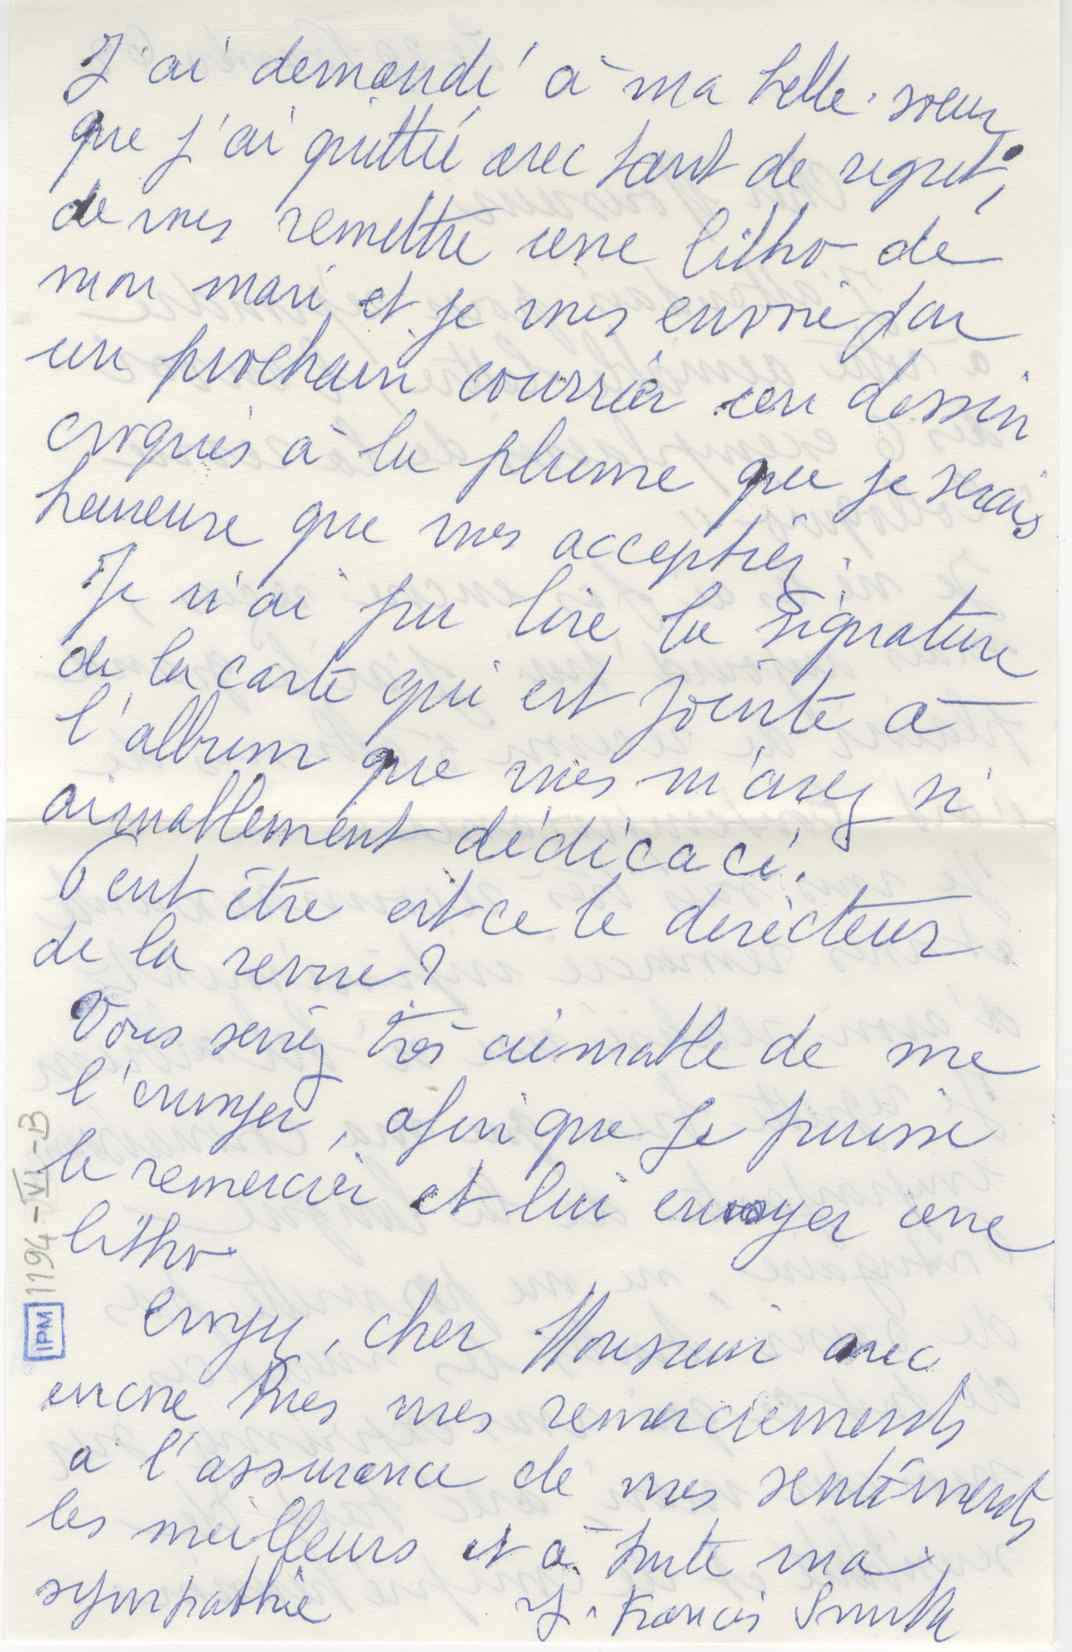 J'ai demandé à ma belle-soeur,
que j'ai quitté avec tant de regret,
de vous remettre une litho de
mon mari et je vous envoie par
un prochain courrier un dessin
croquis à la plume que je serais
heureuse que vous acceptiez.
Je n'ai pu lire la signature
de la carte qui est jointe à
l'album que vous m'avez si
aimablement dédicacé.
Peut être est ce le directeur
de la revue?
Vous seriez très aimable de me
l'envoyer, afin que je puisse
le remercier et lui envoyer une
litho.
Croyez, cher Monsieur avec
encore tous mes remerciements
à l'assurance de mes sentiments
les meilleurs et à toute ma
sympathie
Y. Francis Smith
IPM 1194-VI-B